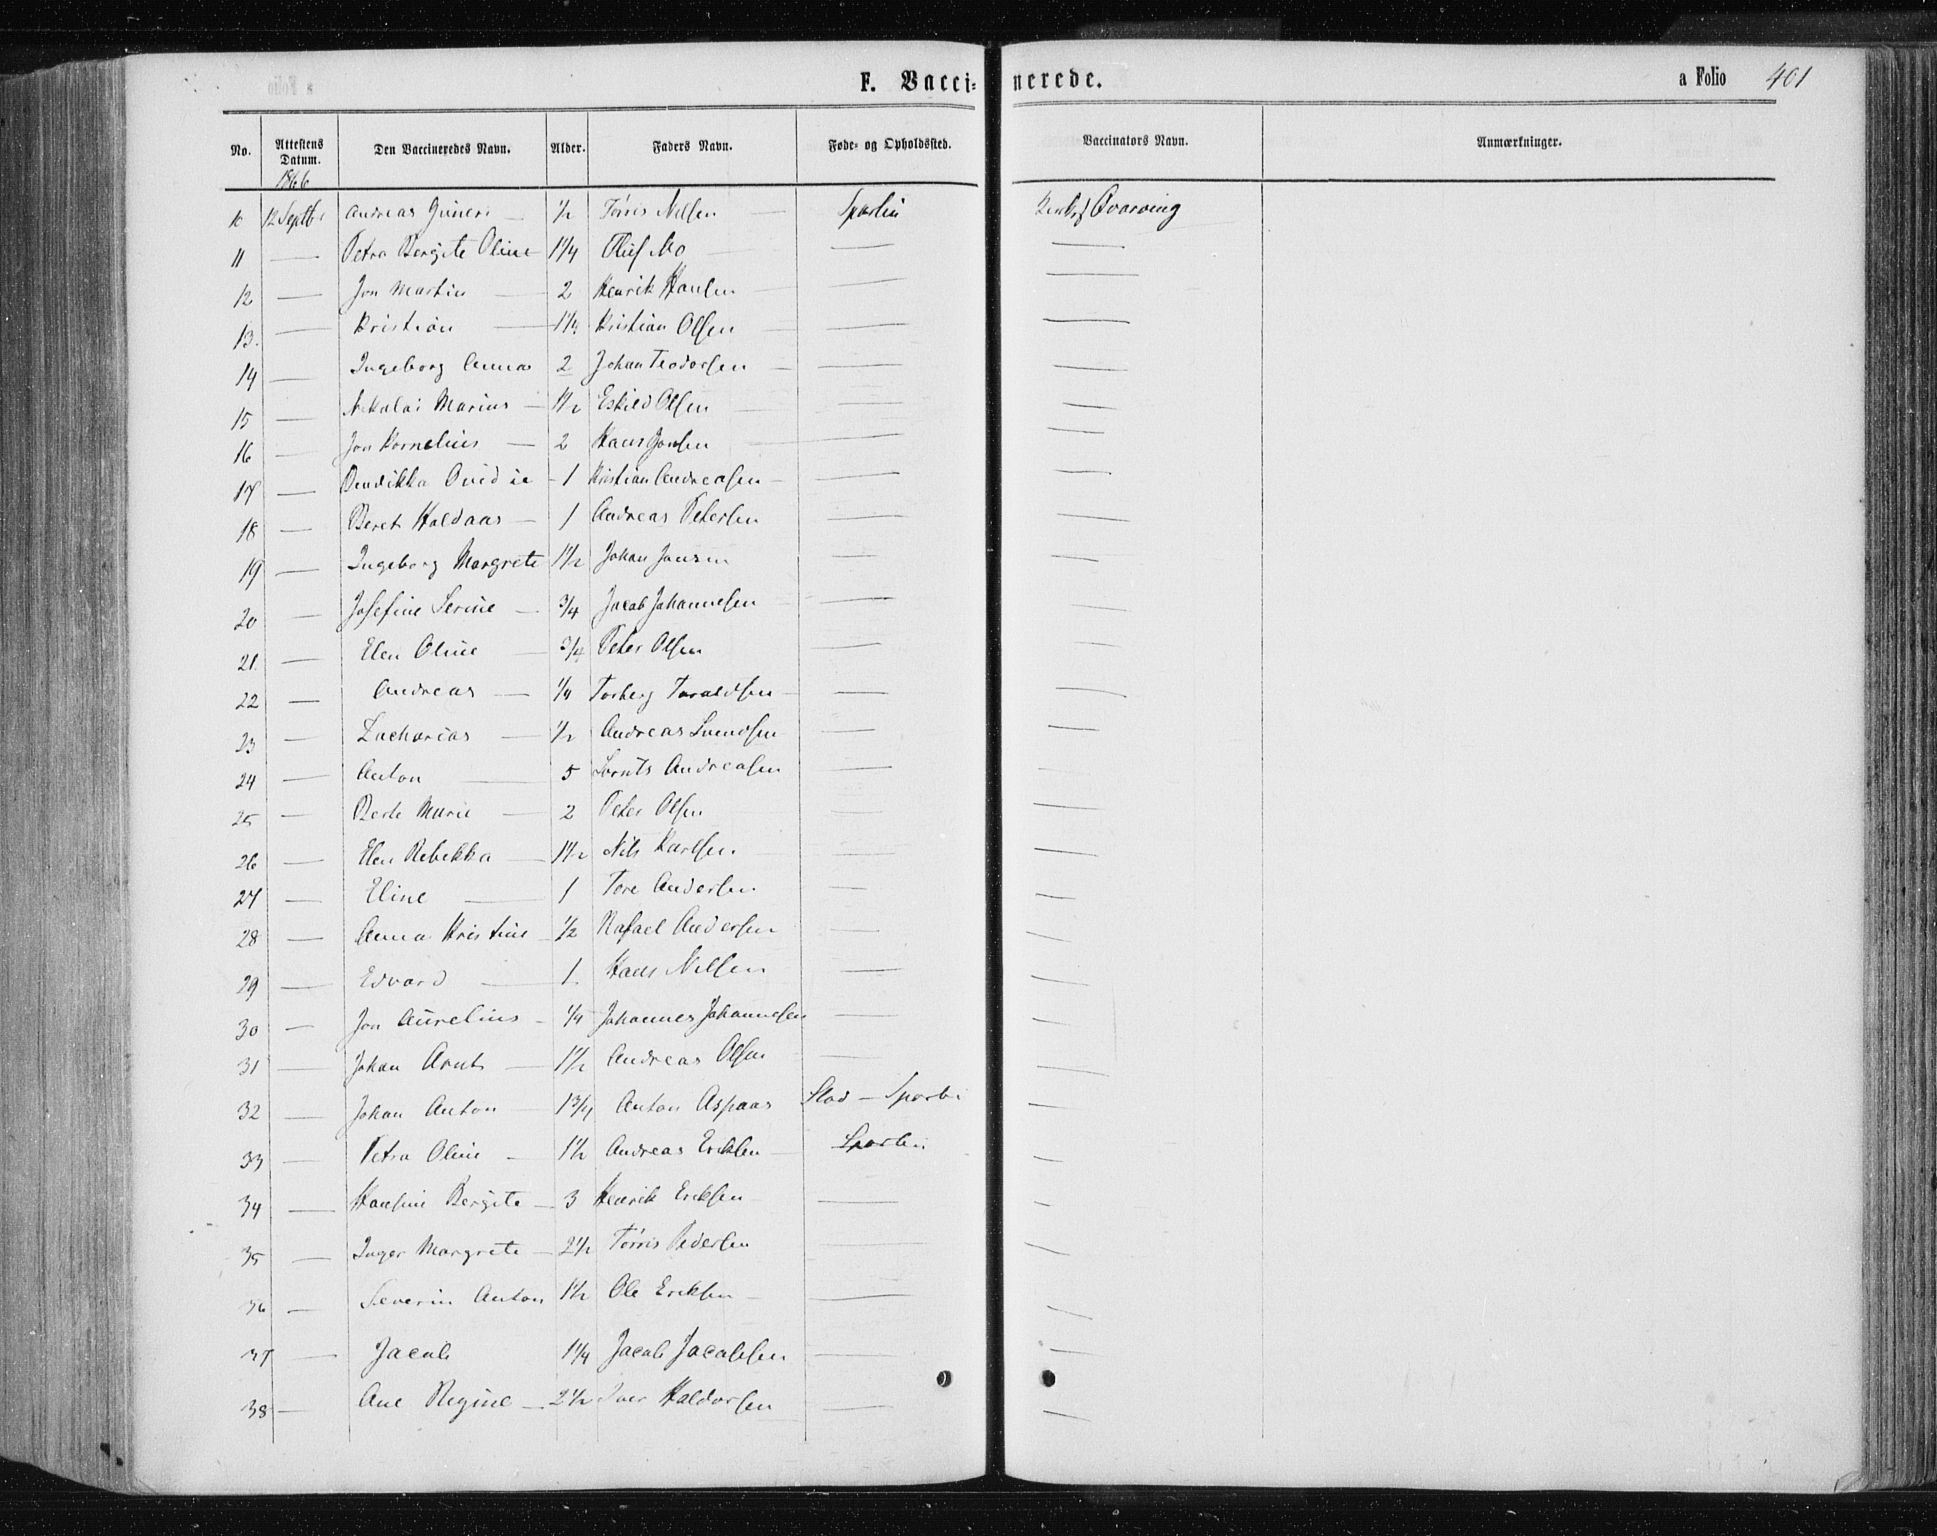 F. Vaccinerede.
a Folio 401
No. Attestens Datum. Den Vaccineredes Navn. Alder. Faders Navn. Føde- og Opholdssted. Vaccinators Navn. Anmærkninger.
1866
10 12 Septbr Andreas — 1/2 Tørris Nilsen — Sparbu Qvarving
11 — Petra Bergite Oline 1 1/4 Oluf Mo — — —
12 — Jon Martin — 2 Henrik Hansen — — —
13. — Kristian — 1 1/4 Kristian Olsen — — —
14 — Ingeborg Anna 2 Johan Teodorsen — — —
15 — Nikolai Marius — 1 1/2 Eskild Olsen — — —
16 — Jon Kornelius — 2 Hans Jonsen — — —
17 — Bendikka Ovidie — 1 Kristian Andreasen — — —
18 — Beret Haldaas — 1 Andreas Petersen — —
19 — Ingeborg Margrete 1 1/2 Johan Jansen — —
20 — Josefine Serine — 3/4 Jacob Johannesen — —
21. — Elen Oline — 3/4 Peter Olsen — —
22 — Andreas — 1/4 Torberg Toraldsen — — —
23 — Zacharias — 1/2 Andreas Svendsen — —
24 — Anton — 5 Andreasen — —
25 — Berte Marie — 2 Peter Olsen — —
26 — Elen Rebekka — 1 1/2 Nils Karlsen — —
27 — Eline — 1 Tore Andersen — —
28 — Anna Kristine — 1/2 Rafael Andersen — —
29 — Edvard — 1 Hans Nilsen — —
30 — Jon Aurelius — 1/4 Johannes Johannesen — —
31 — Johan Arnt — 1 1/2 Andreas Olsen — —
32 — Johan Anton — 1 3/4 Anton Aspaas Stod — Sparbu —
33 — Petra Oline — 1 1/2 Andreas Eriksen — Sparbu —
34 — Hansine Bergite — 3 Henrik Eriksen — — —
35 — Inger Margrete — 2 1/2 Tørris Pedersen — —
36 — Severin Anton 1 1/2 Ole Eriksen — — —
37 — Jacob 1 1/4 Jacob Jacobsen — —
38 — Ane Regine — 2 1/2 Iver Haldorsen — —